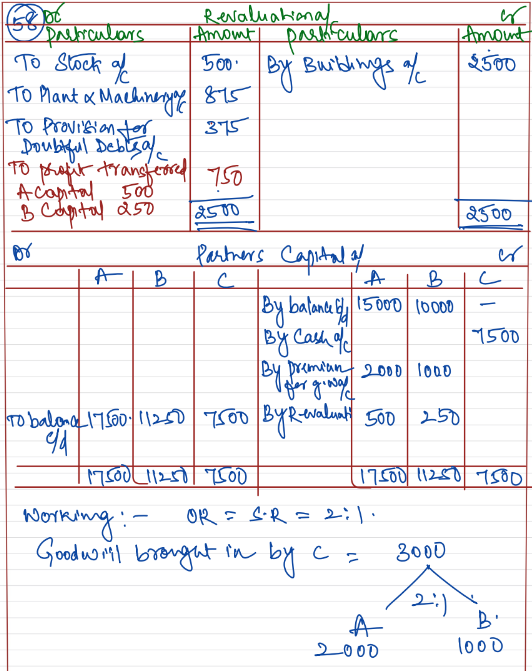 58 Dr Revaluation a/c Cr
particulars Amount particulars Amount
To Stock a/c 500. By Buildings a/c 2500
To Plant & Machinery a/c 875
To Provision for 375
Doubtful Debts a/c
To profit transferred 750
A capital 500
B Capital 250
2500 2500
Dr Partners Capital a/c Cr
A B C A B C
By balance b/d 15000 10000 —
By Cash a/c 7500
By premium 2000 1000
for g.w a/c
To balance 17500 11250 7500 By Revaluati 500 250
c/d
17500 11250 7500 17500 11250 7500
Working :- OR = S.R = 2:1.
Goodwill brought in by C = 3000
2:1
A B.
2000 1000